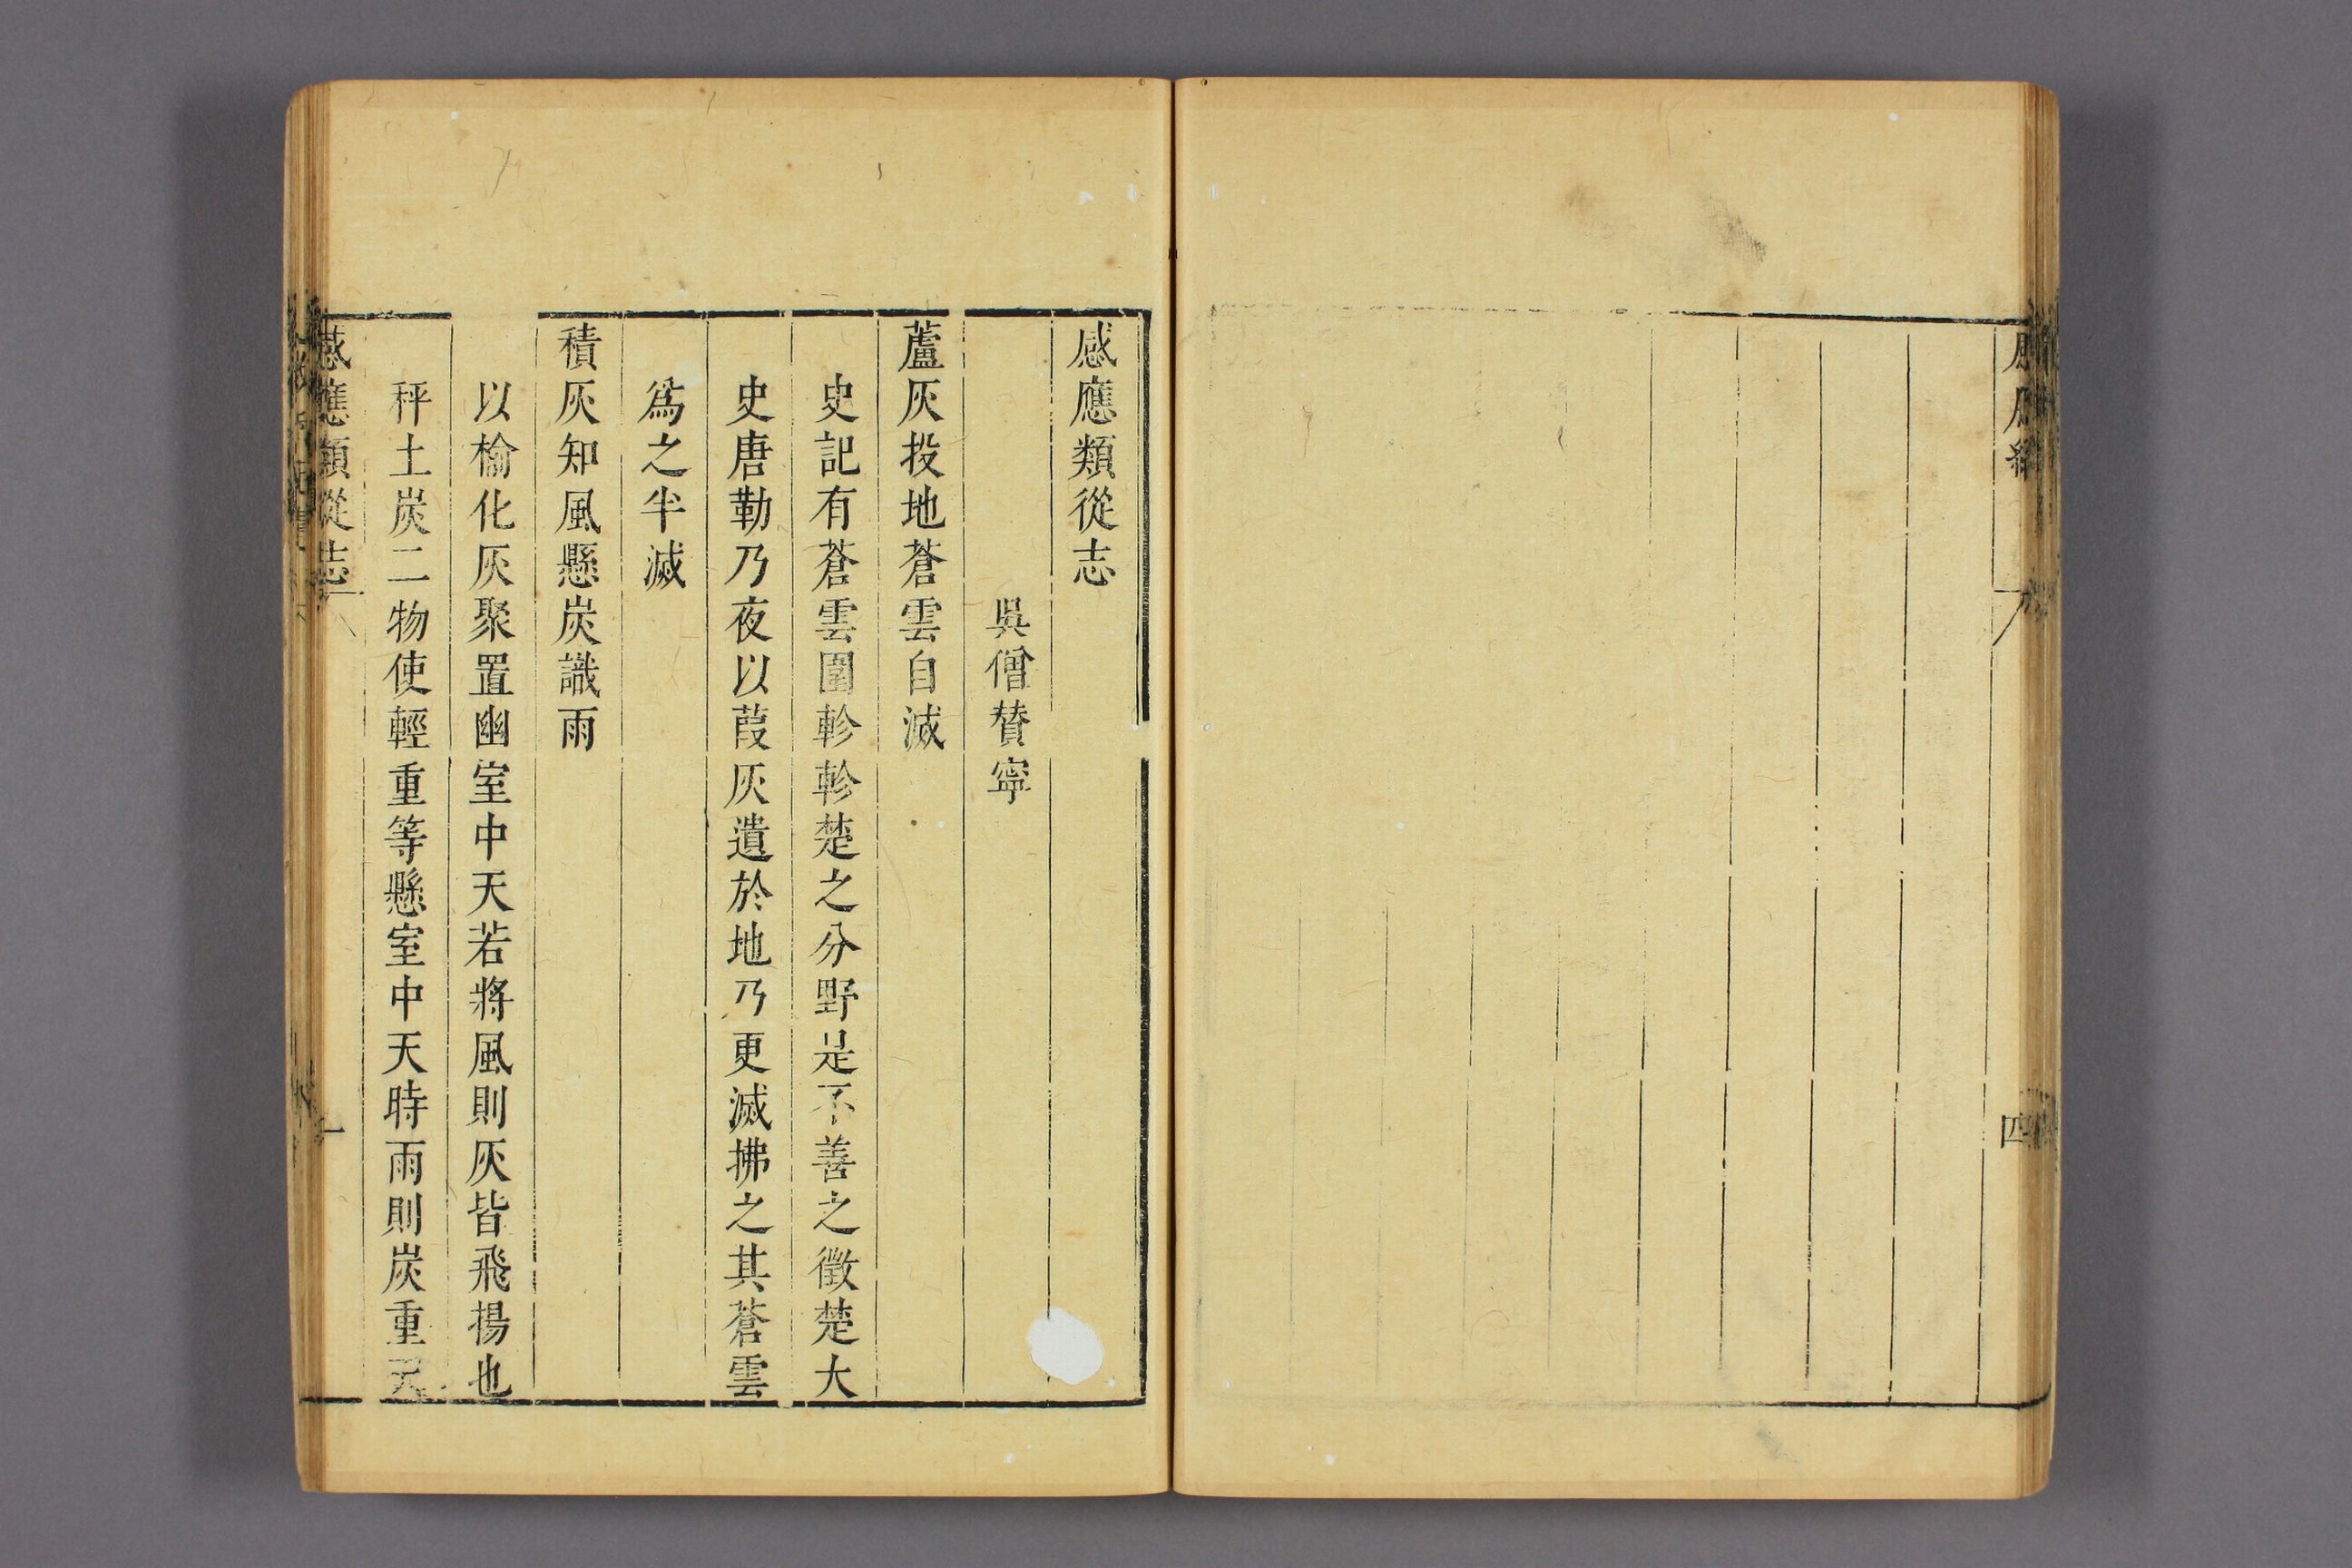 四
感應類從志
吳僧贊寧
蘆灰投地蒼雲自滅
史記有蒼雲圍軫軫楚之分野是不善之徵楚大
史唐勒乃夜以葭灰遺於地乃更滅拂之其蒼雲
爲之半滅
積灰知風懸炭識雨
以榆化灰聚置幽室中天若將風則灰皆飛揚也
秤土炭二物使輕重等懸室中天時雨則炭重天
感應類從志
一